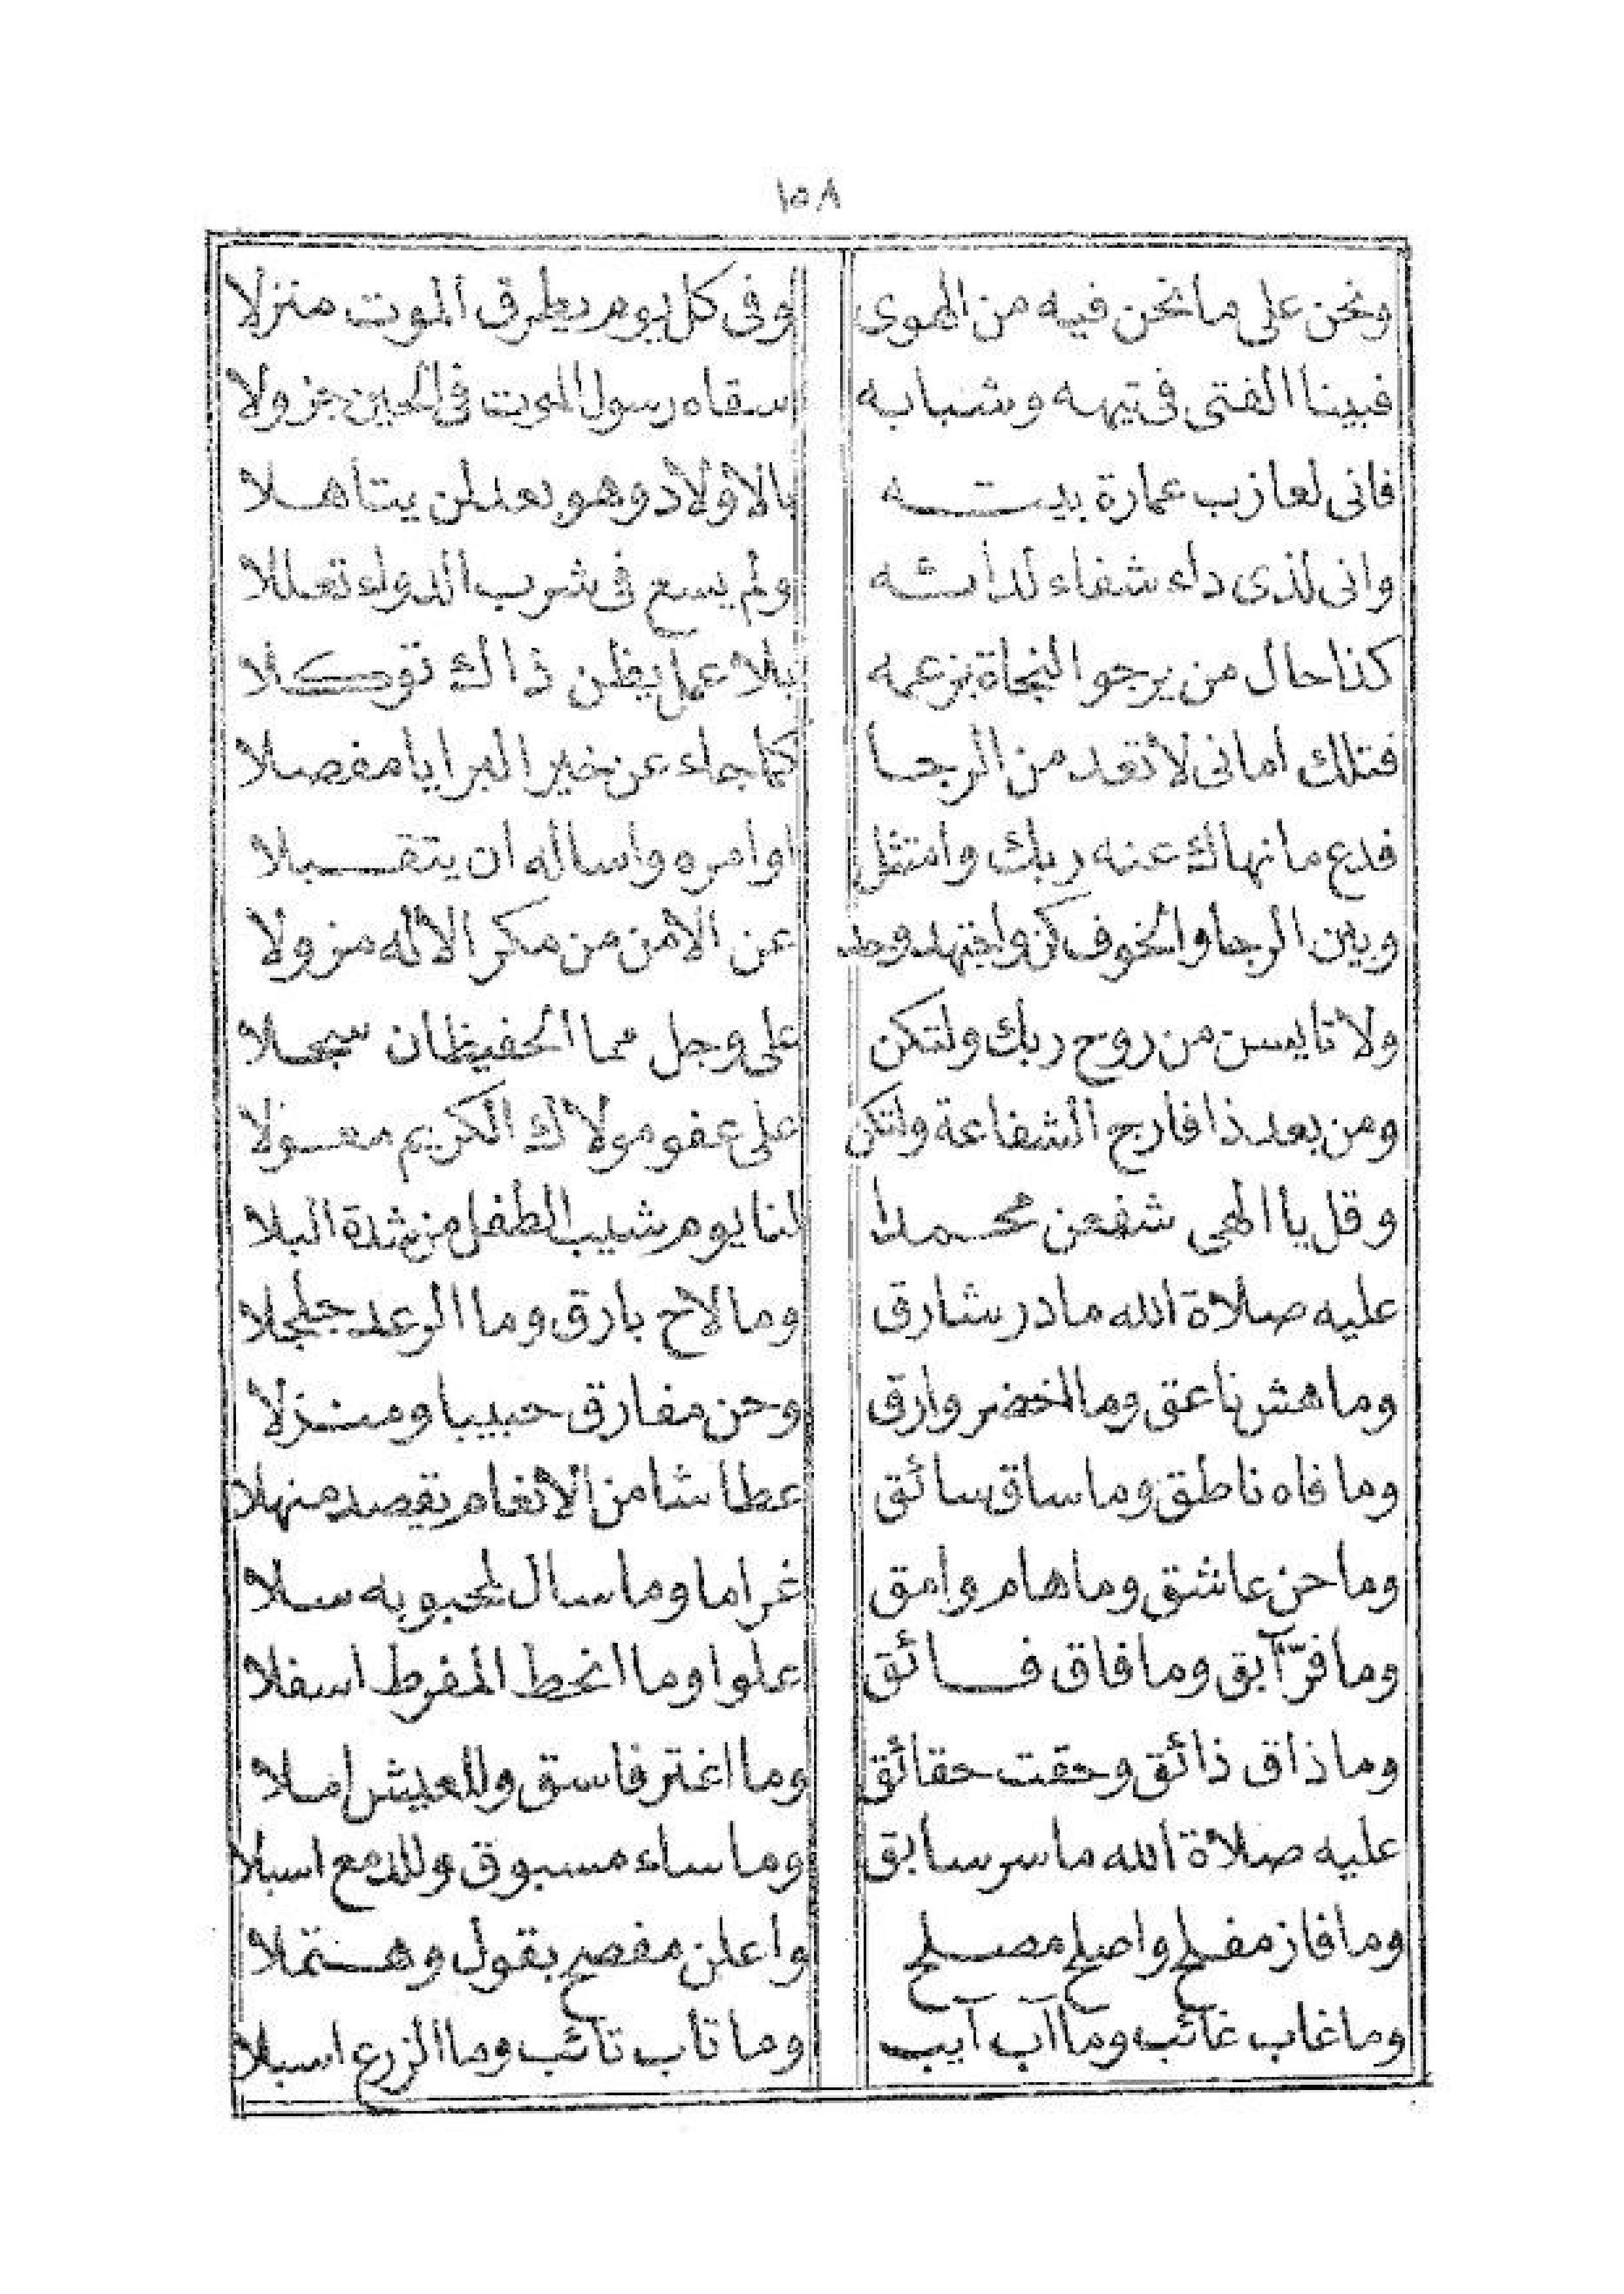 ١٥٨
ونحن على ما نحن فيه من الهوى وفى كل يوم يطرق الموت منزلا
فبينا الفتى فى تيهه وشبابه سقاه رسول الموت فى الحين جزولا
فانى لعازب عمارة بيته بالاولاد وهو بعد لن يتاهلا
وانى لذى داء شفاء لدائه ولم يسع فى شرب الدواء تعللا
كذا حال من يرجوا النجاة بزعمه بلا عمل يظن ذاك توكلا
فتلك امانى لا تعد من الرجا كما جاء عن خير البرايا مفصلا
فدع ما نهاك عنه ربك وامتثل اوامره واساله ان يتقبلا
وبين الرجا والخوف كن واجتهد وحد عن الامن من مكر الاله مزولا
ولا تايسن من روح ربك ولتكن على وجل مما الحفيظان سجلا
ومن بعد ذا فارج الشفاعة ولتكن على عفو مولاك الكريم معولا
وقل يا الهى شفعن محمدا لنا يوم شيب الطفل من شدة البلا
عليه صلاة الله ما در شارق وما لاح بارق وما الرعد جلجلا
وما هش ناعق وما اخضر وارق وحن مفارق حبيبا ومنزلا
وما فاه ناطق وما ساق سائق عطاشا من الانعام يقصد منهلا
وما حن عاشق وما هام وامق غراما وما سال لمحبوبه سلا
وما فرّ آبق وما فاق فائق علوا وما انحط المفرط اسفلا
وما ذاق ذائق وحقت حقائق وما اغتر فاسق وللعيش املا
عليه صلاة الله ما سر سابق وما ساء مسبوق وللدمع اسبلا
وما فاز مفلح واصلح مصلح واعلن مفصح بقول وهتملا
وما غاب غائب وما آب آيب وما تاب تائب وما الزرع اسبلا